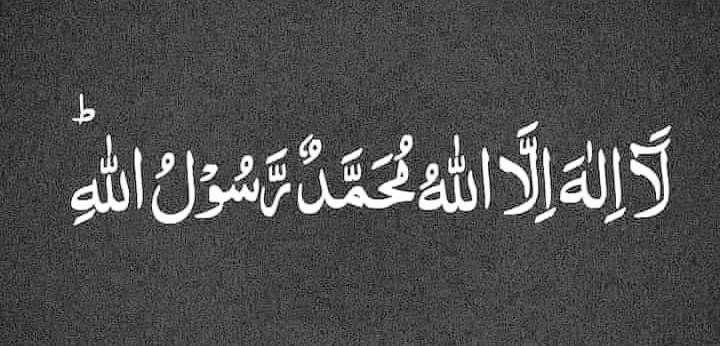 لَآ اِلٰهَ اِلَّا اللّٰهُ مُحَمَّدٌ رَّسُوْلُ اللّٰهِؕ